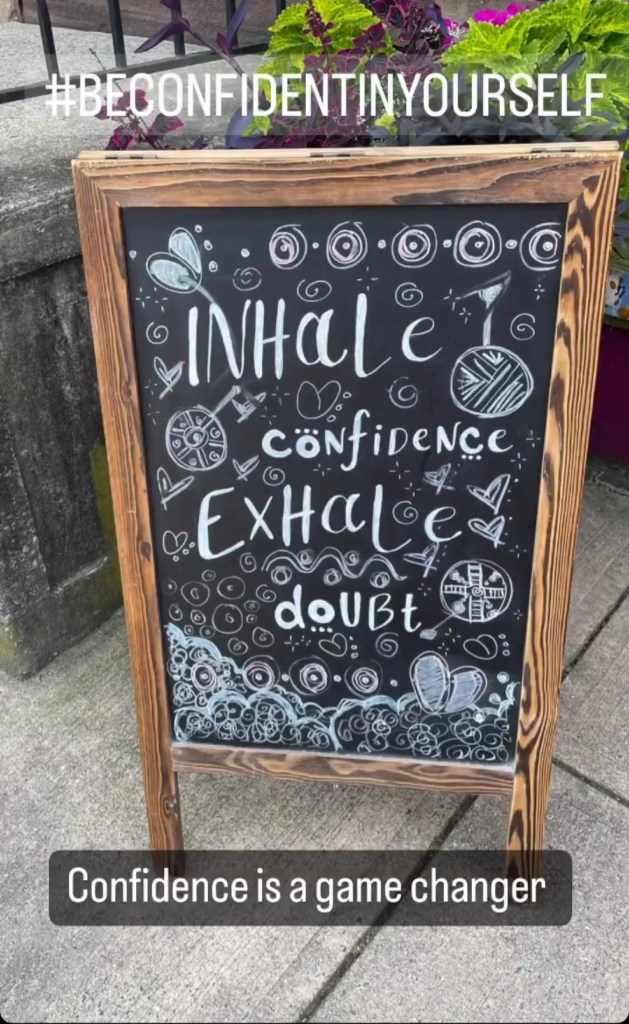 #BECONFIDENTINYOURSELF
INHALE
CONFIDENCE
EXHALE
doUBt
Confidence is a game changer